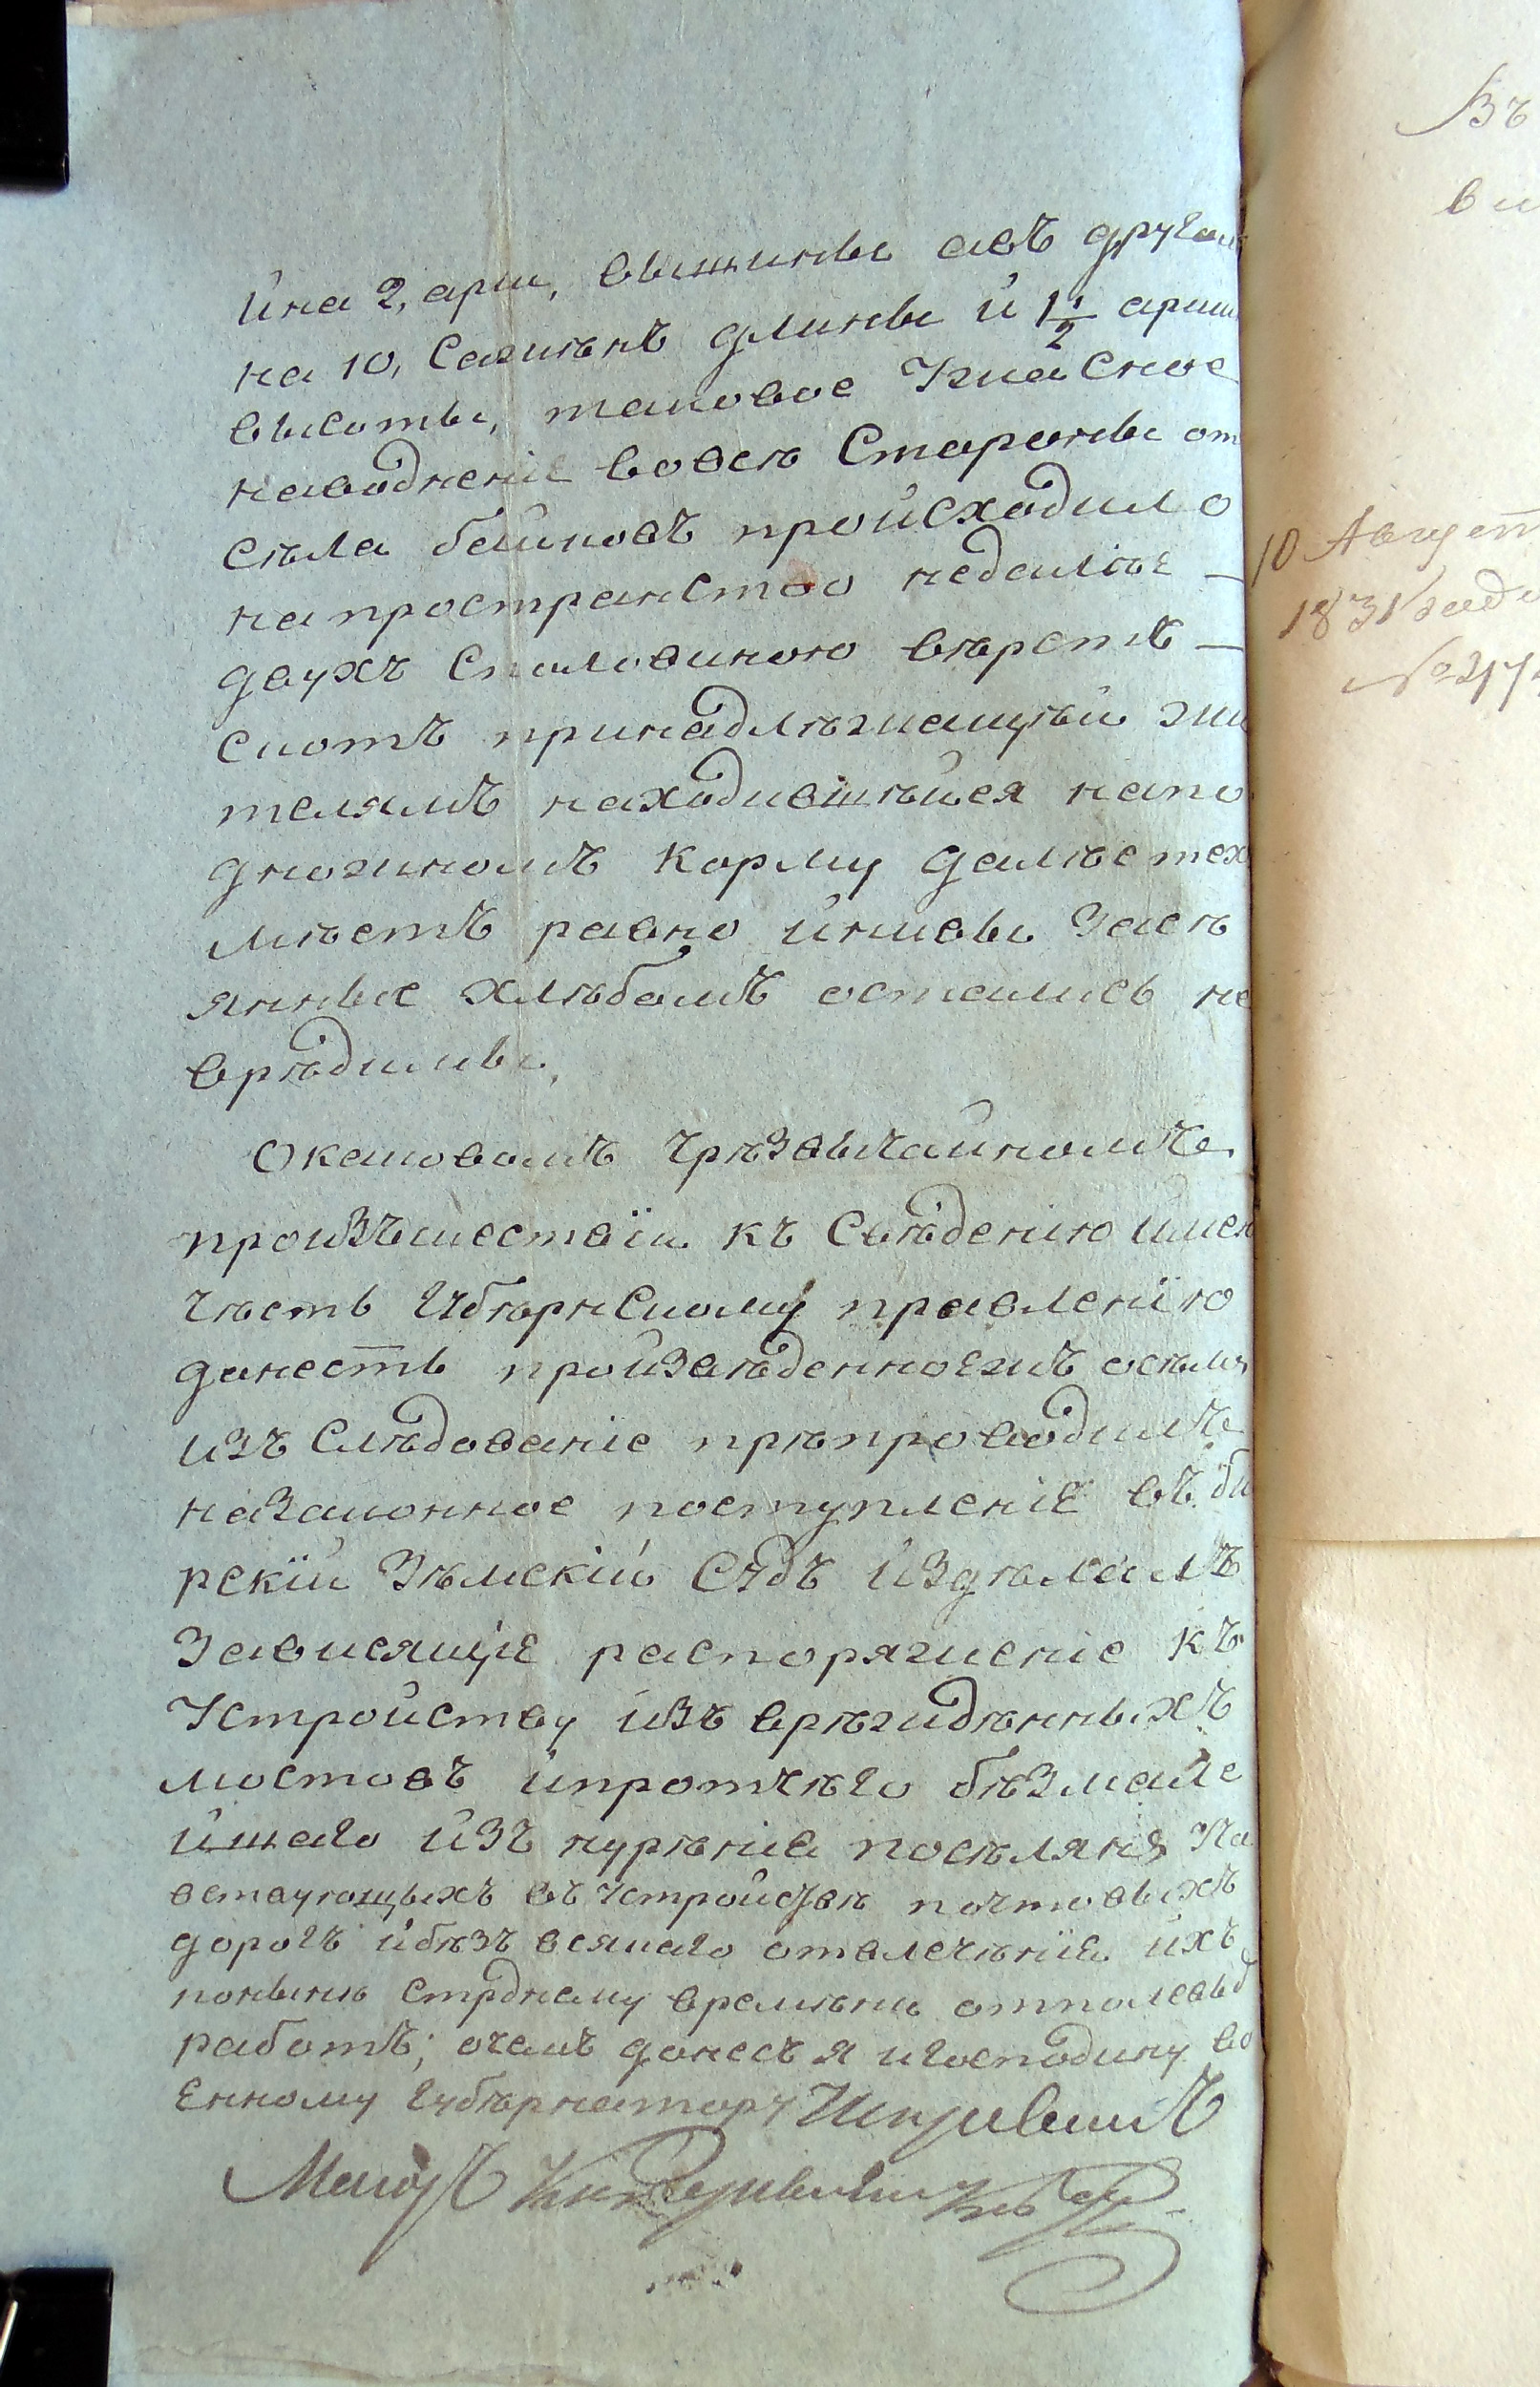 ина 2, арш, вышины авъ другомъ
на 10, Сажѣнъ длины и 1 1/2 арши
высоты, таковое Ужасное
наводненіе вовсѣ Стороны от
сѣла баиковъ происходило
напространство недалѣе —
двухъ Споловиною вѣрстъ —
скотъ принадлѣжащѣй жи
телямъ находившѣйся напо
дножномъ корму далѣе тех
мѣстъ равно инивы Засѣ
янные хлѣбомъ остались не
врѣдимы,
Окаковомъ Чрѣзвычайномъ
произъшествіи къ Свѣденію имею
Чѣсть Губѣрнскому правленію
данесть произвѣденноежъ осѣмъ
изъ Слѣдованіе прѣпроводилъ
назаконное поступленіе въ би
рскій Зѣмскій Судъ издѣлалъ
Зависящіе распоряженіе къ
Устройству изъ врѣжидѣнныхъ
мостовъ ипротчѣго бѣзмале
йшаго изъ нурѣніе посѣлянъ Уча
вствующыхъ въ Устройствѣ почтовыхъ
дорогъ ибѣзъ всякаго отвлечѣніе ихъ
понынѣ Стрдному врамѣни отполевыхъ
работъ; очемъ данесъ я игосподину во
енному Губѣрнатору
Въ
ви
10 Август
1831 года
№ 217